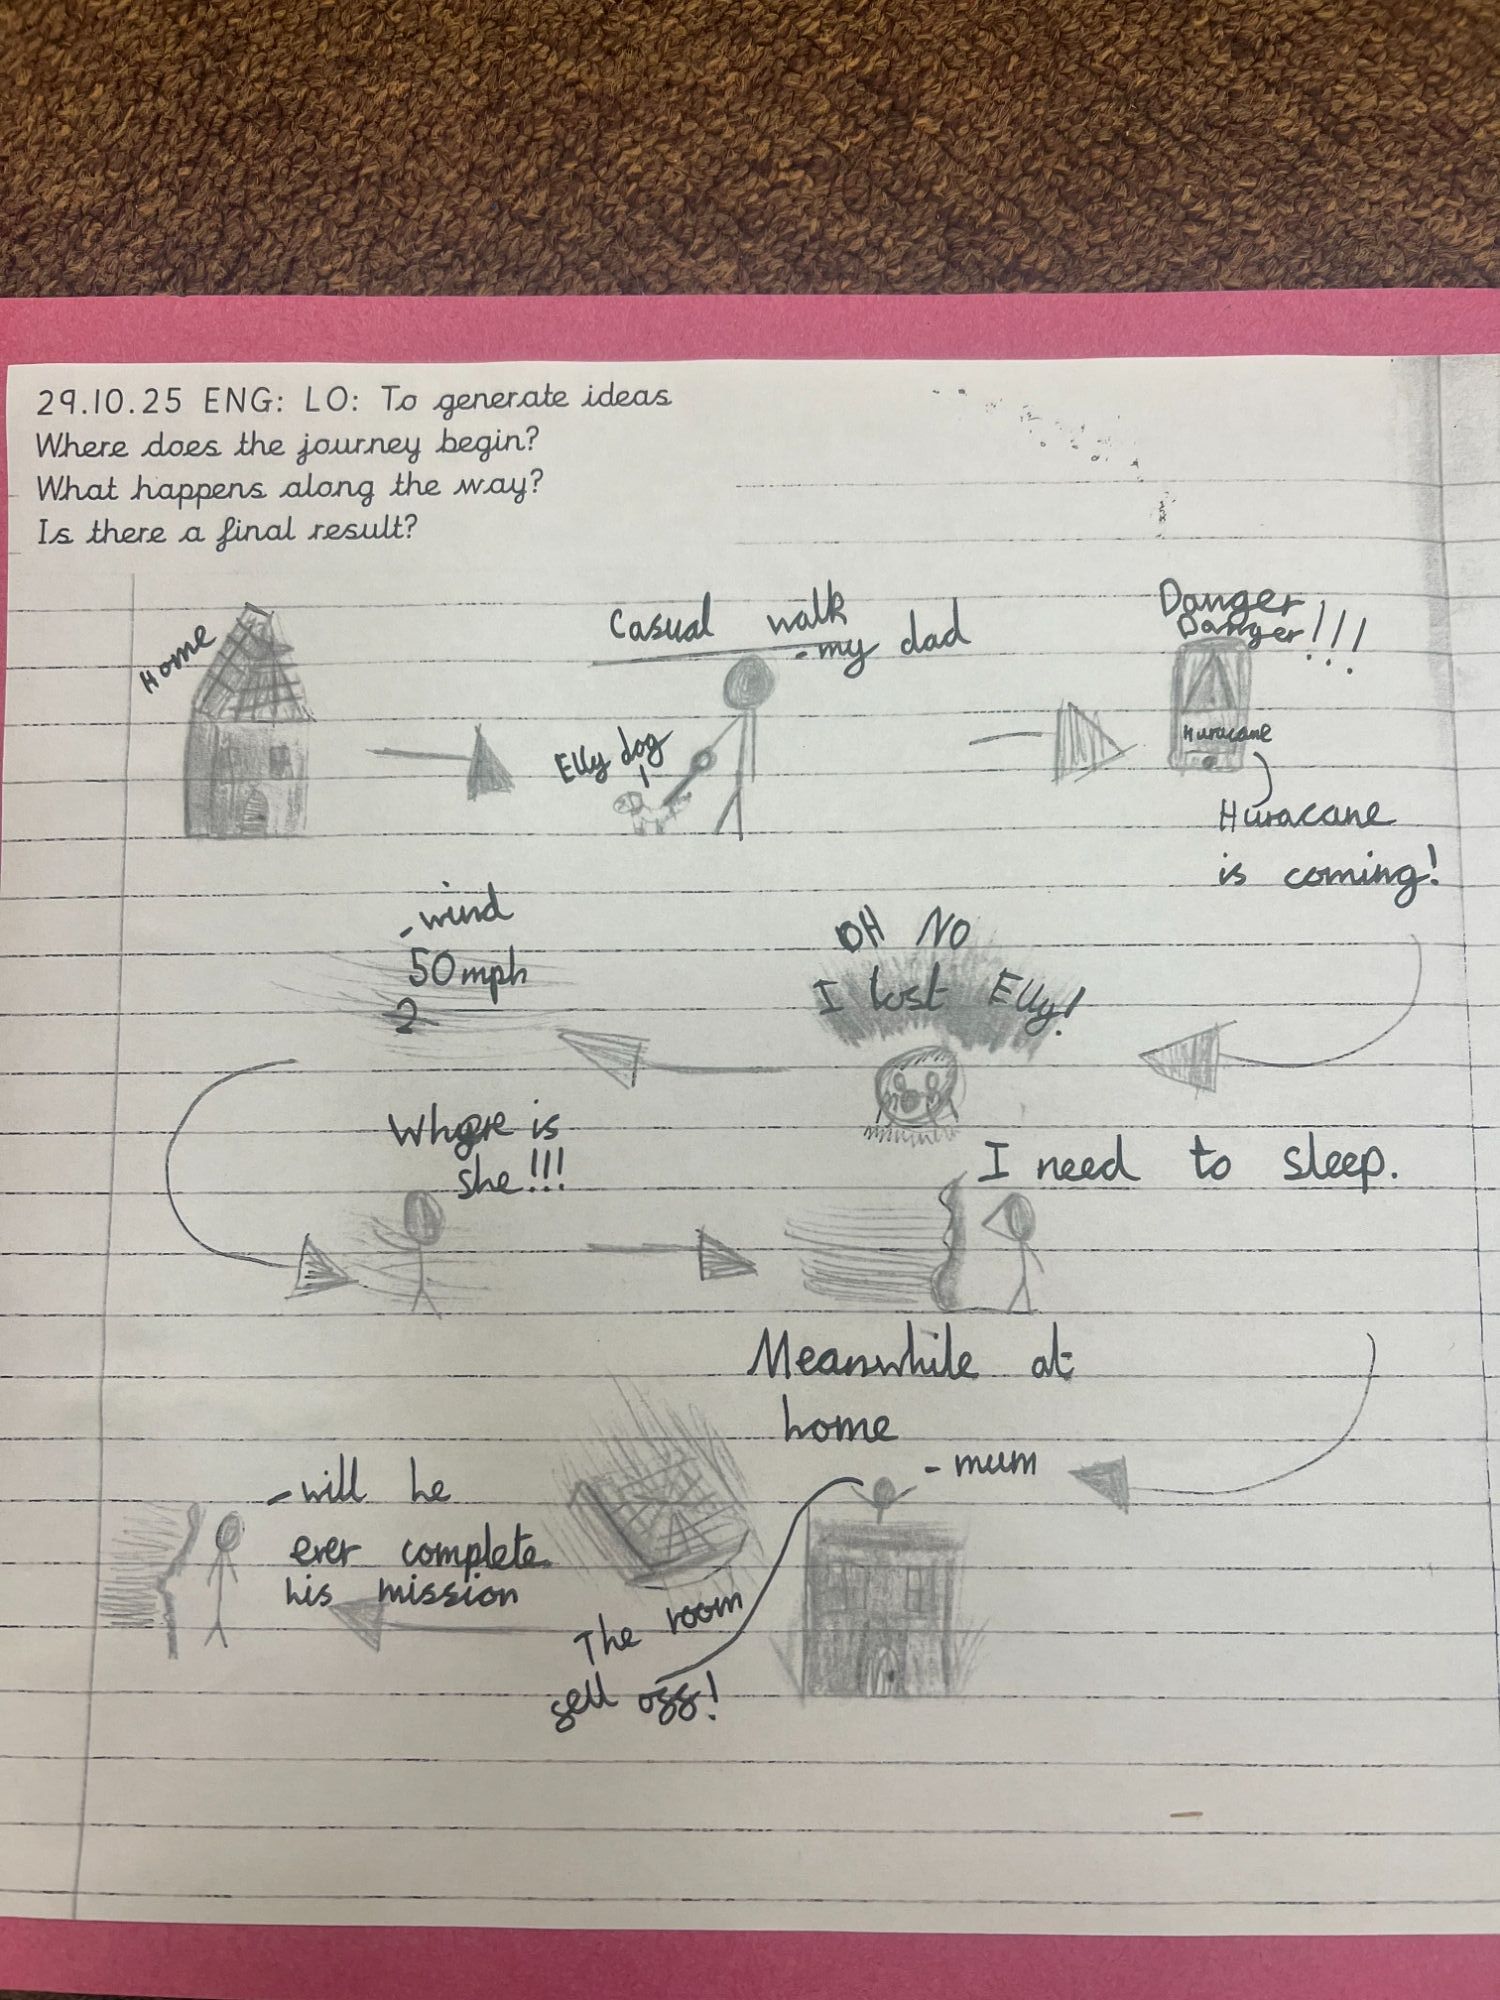 29.10.25 ENG: LO: To generate ideas
Where does the journey begin?
What happens along the way?
Is there a final result?
Home
Casual walk
- my dad
Elly dog
Danger
Danger!!!
Huracane
Huracane
is coming!
OH NO
I lost Elly!
- wind
50mph
2
Where is
she!!!
I need to sleep.
Meanwhile at
home
- mum
The room
fell off!
- will he
ever complete
his mission